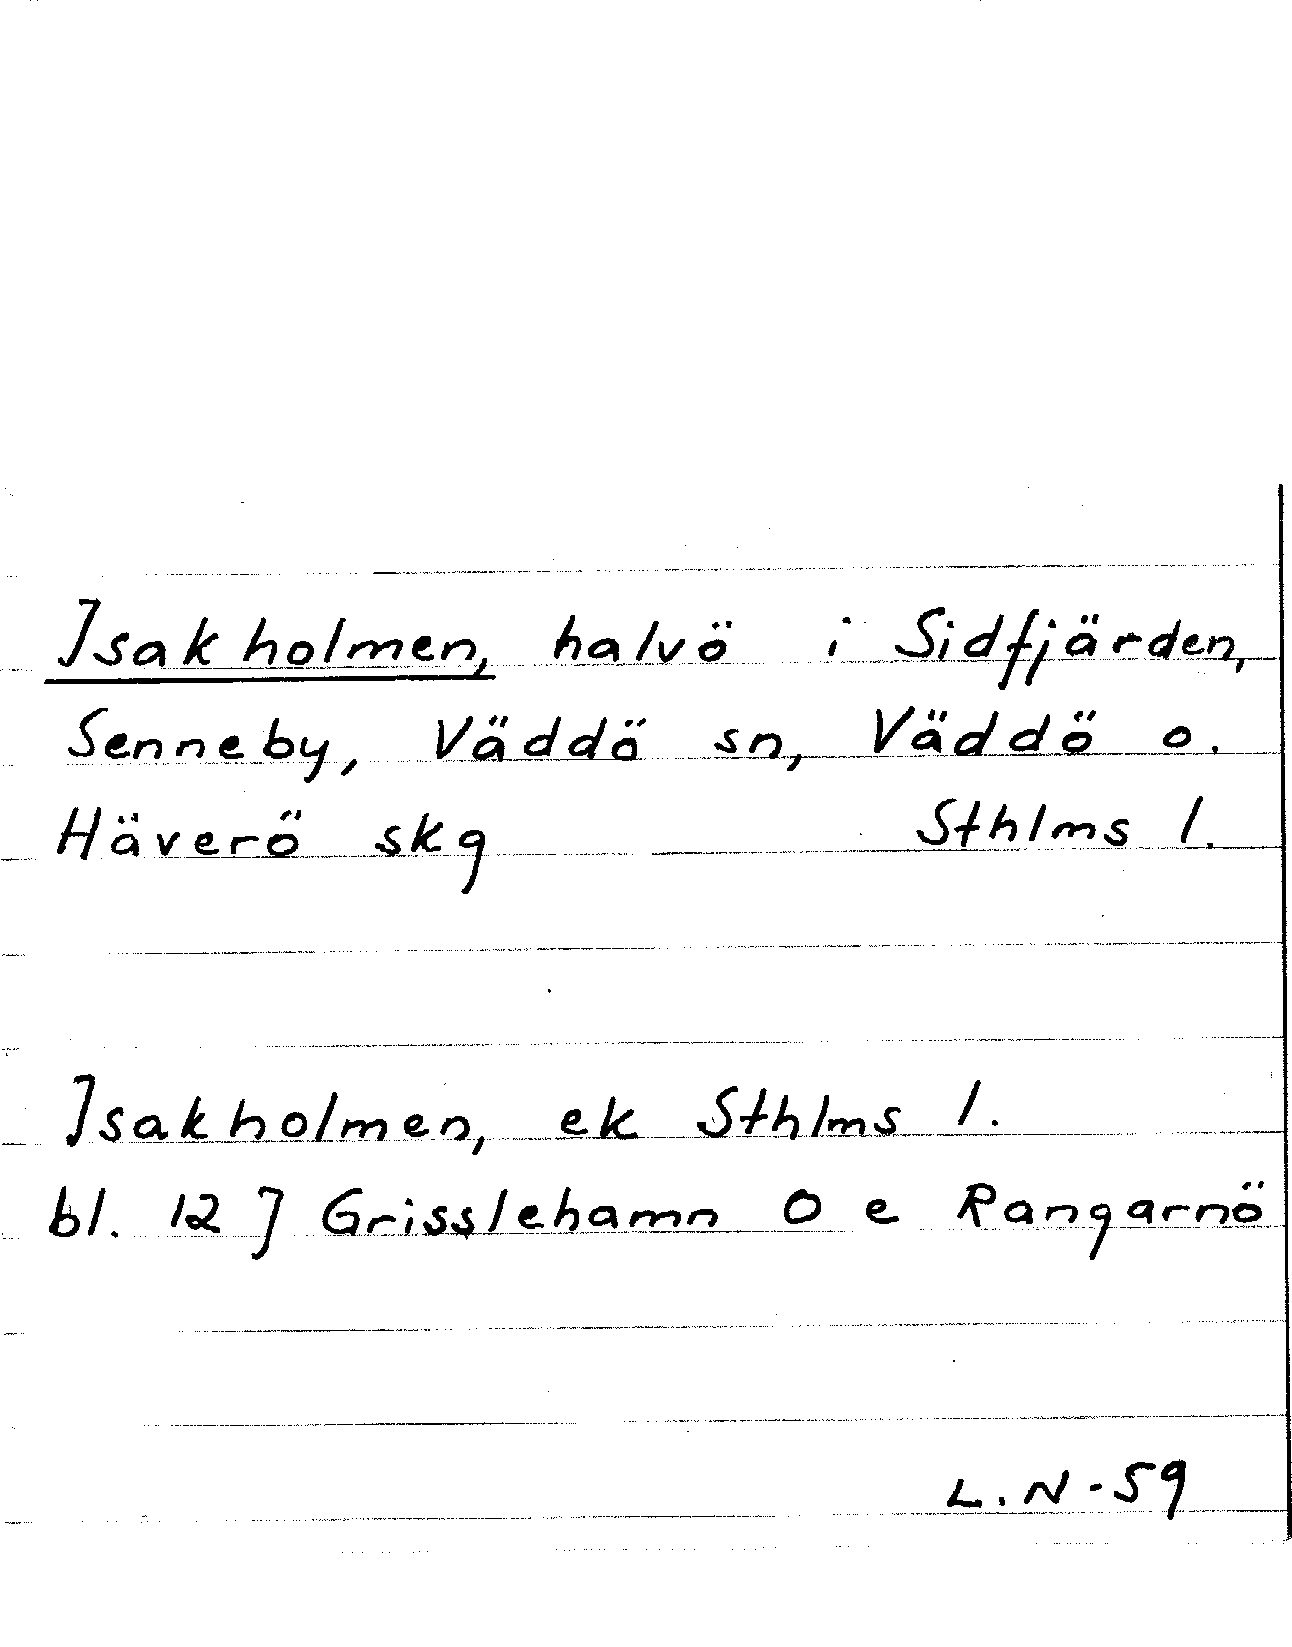 Isakholmen, halvö i Sidfjärden,
Senneby, Väddö sn, Väddö o.
Häverö skg Sthlms l.
Isakholmen, ek Sthlms l.
bl. 12 J Grisslehamn O e Rangarnö
L.N-59